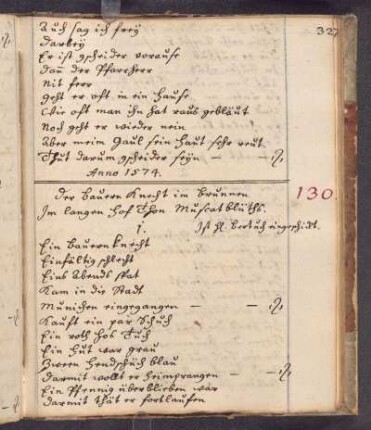 327
Auch sag ich frey
Darbey
Er ist gscheider voraußs
Dan der Pfarrherr
Nit ferr
geht er oft in ein Hauße
Wie oft man ihn hat raus gebläut
Noch geht er wieder nein
Aber mein Gaul sein Haut sehr reut
Thut darum gscheider seÿn
Anno 1574.
130
Der Bauern Knecht im Brunnen
Im langen Hof Thon Muscatblüths.
1. Ist H. Bertuch eingeschickt.
Ein Bauern Knecht
Einfältig schlecht
Eins Abends spat
Kam in die Stadt
München eingegangen
Kauft ein par Schuch
Ein roth Hos Tuch
Ein Hut war grau
Zween Hendschuch blau
Darmit wollt er heimprangen
Ein Pfennig überblieben war
Darmit thät er fortlaufen